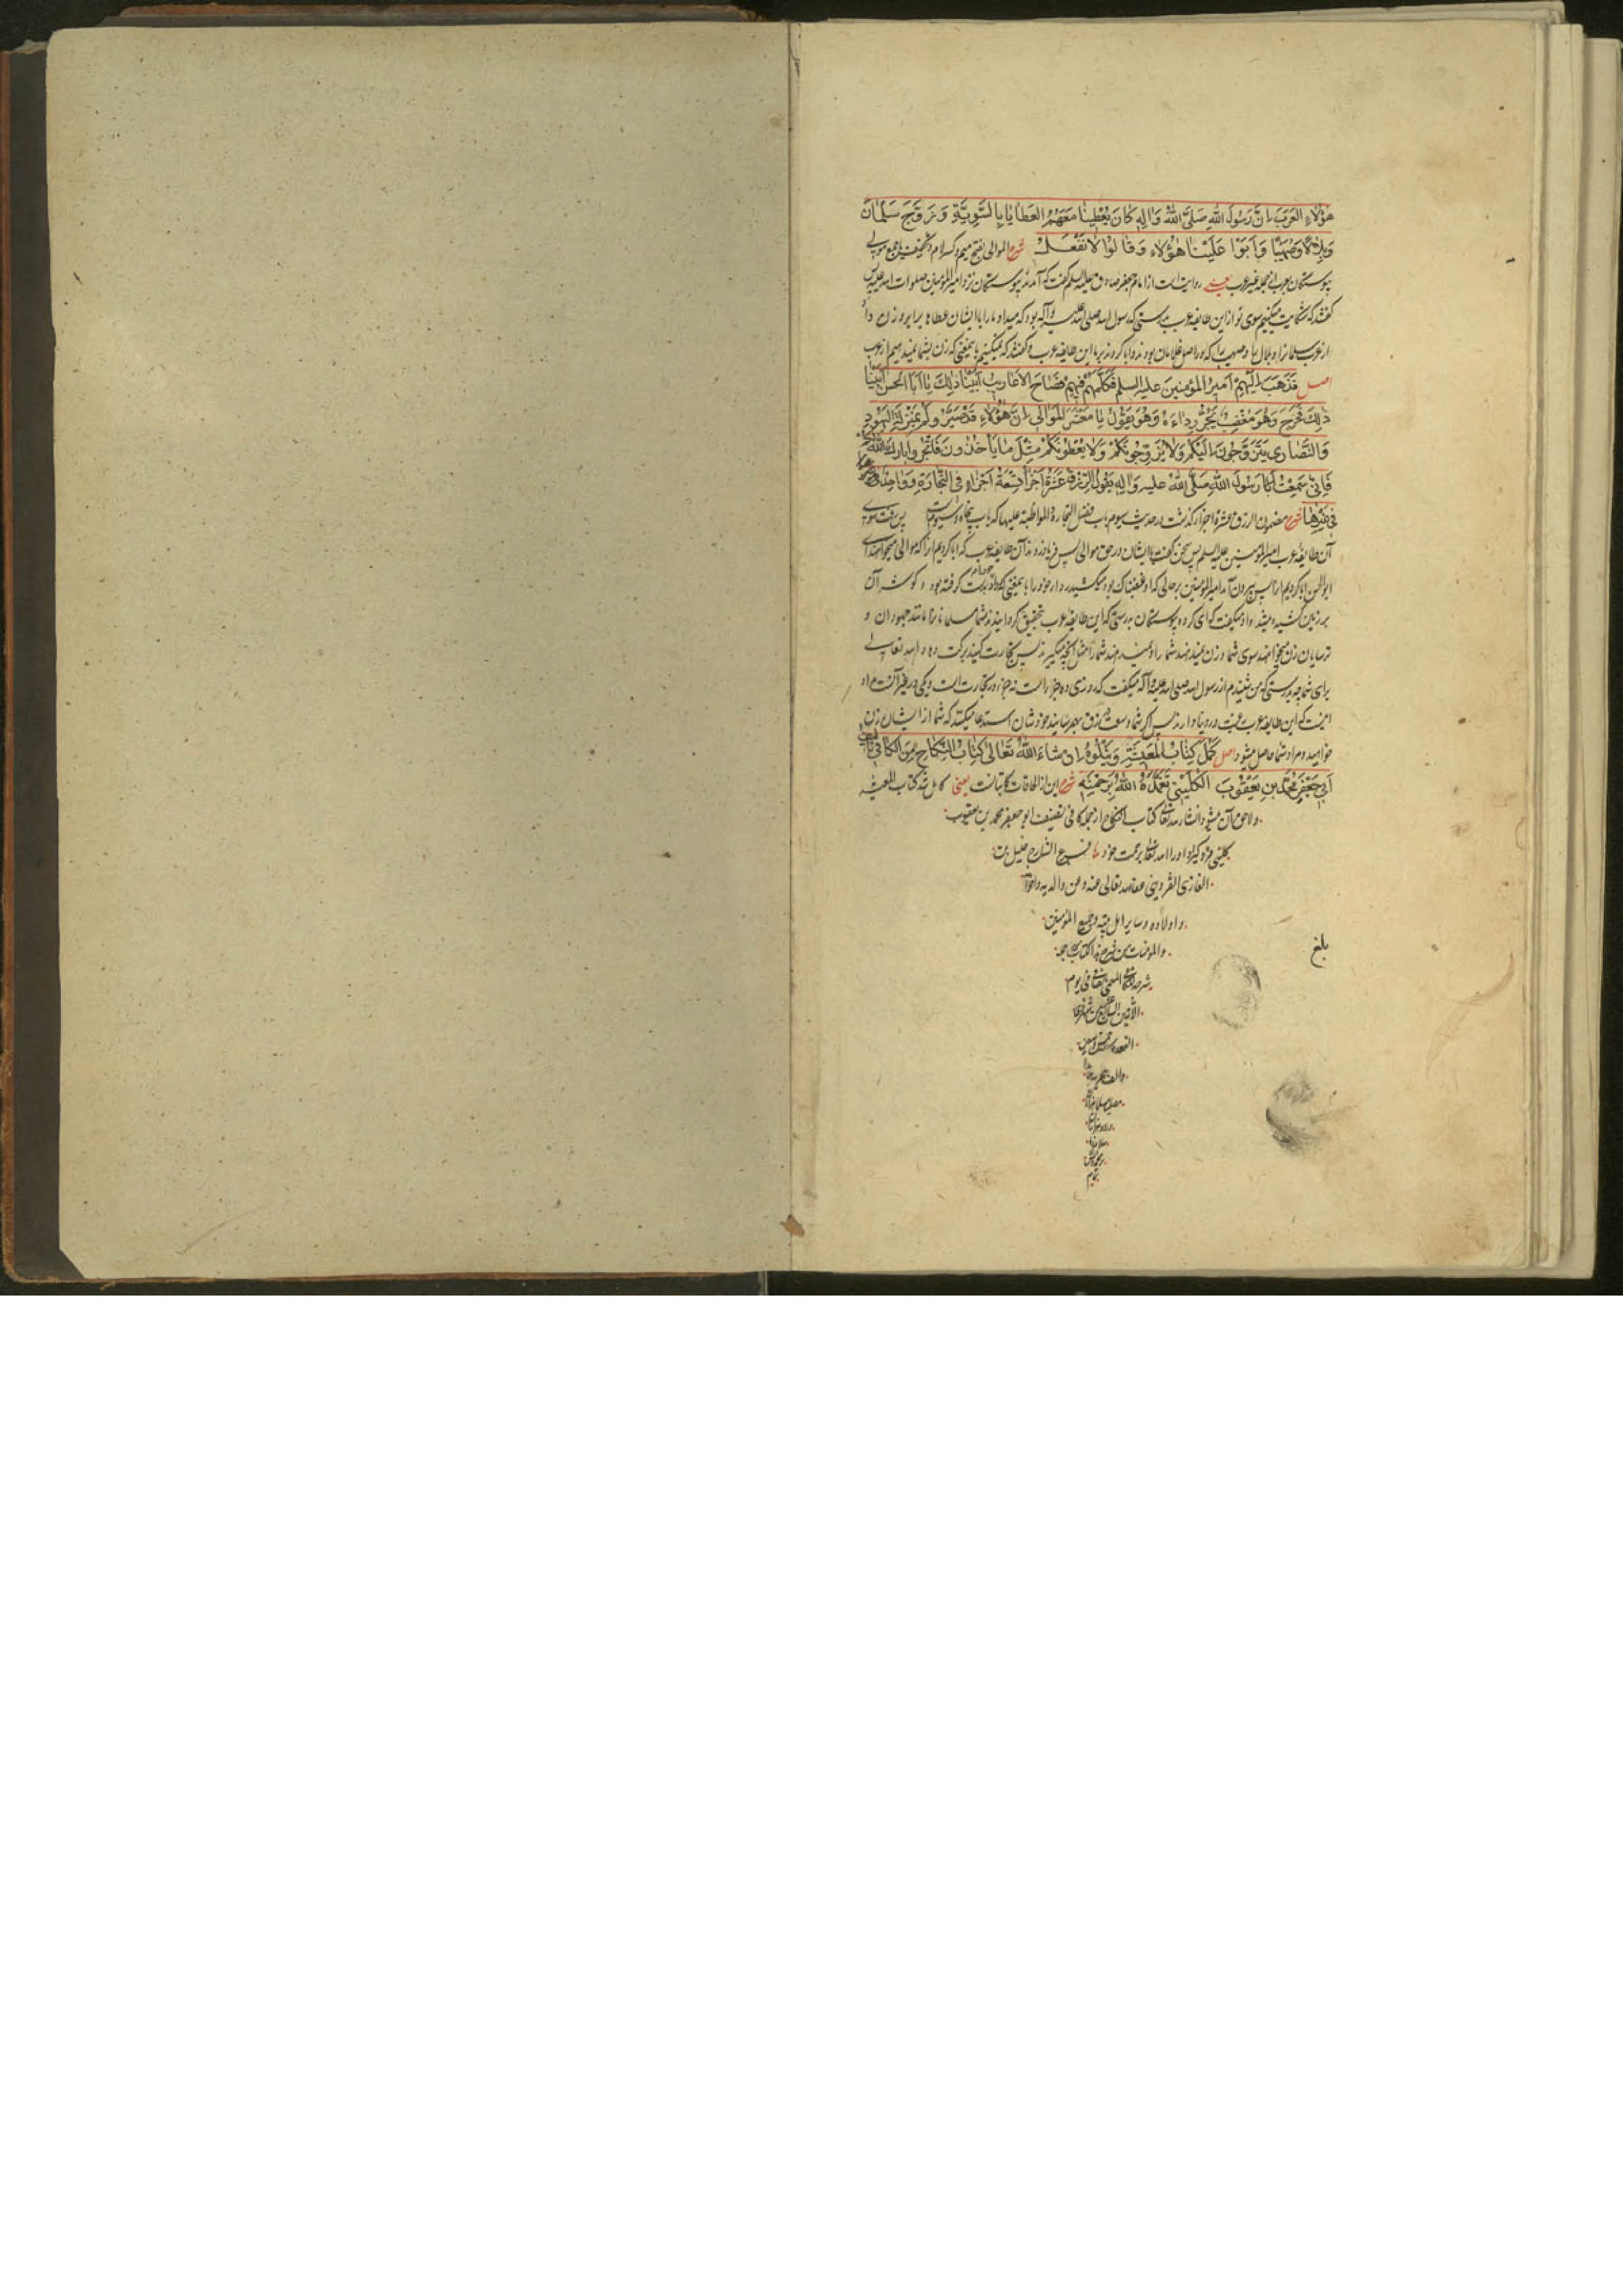 هؤُلاءِ العَرَبَ اِنَّ رَسُولَ اللهِ صَلَّى اللهُ وَالِهِ كانَ يُعْطِينا مَعَهُمُ العَطايا بِالسَّوِيَّةِ وَزَوَّجَ سَلْمانَ
وَبِلالًا وَصُهَيْبًا وَاَبَوْا عَلَيْنا هؤُلاءِ وَقالُوا لا نَفْعَلُ شرح الموالی بفتح میم و کسر لام و تخفیف یا جمع مولی
پیوستگان بعرب از جمله غیر عرب یعنی روایت است از امام جعفر صادق علیه السلم گفت که آمدند پیوستگان نزد امیر المؤمنین صلوات الله علیه پس
گفتند که شکایت میکنیم سوی تو از این طایفه عرب بدرستی که رسول الله صلی الله علیه وآله بود که میداد ما را با ایشان عطاها برابر و زن داد
از عرب سلمان را و بلال را و صهیب را که در اصل غلامان بودند و ابا کردند بر ما این طایفه عرب و گفتند که نمیکنیم باینمعنی که زن بشما نمیدهیم از عرب
اصل فَذَهَبَ اِلَيْهِمْ اَميرُ المُؤْمِنينَ عليه السلم فَكَلَّمَهُمْ فيهِمْ فَصاحَ الاَعاريبُ اَبَيْنا ذلِكَ يا اَبَا الحَسَنِ اَبَيْنا
ذلِكَ فَخَرَجَ وَهُوَ مُغْضَبٌ يَجُرُّ رِداءَهُ وَهُوَ يَقُولُ يا مَعْشَرَ المَوالي اِنَّ هؤُلاءِ قَدْ صَيَّرُوكُمْ بِمَنْزِلَةِ اليَهُودِ
وَالنَّصارى يَتَزَوَّجُونَ اِلَيْكُمْ وَلا يُزَوِّجُونَكُمْ وَلا يُعْطُونَكُمْ مِثْلَ ما يَأخُذُونَ فَاتَّجِرُوا بارَكَ اللهُ لكم
فَاِنّي سَمِعْتُ رَسُولَ اللهِ صَلَّى اللهُ عليه وَالِهِ يَقُولُ الرِّزْقُ عَشَرَةُ اَجْزاءٍ تِسْعَةُ اَجْزاءٍ فِى التِّجارَةِ وَواحِدَةٌ
في غَيْرِها شرح مضمون الرزق عشرة اجزاء گذشت در حدیث سیوم باب فضل التجارة والمواظبة علیها که باب پنجاه و سیوم است پس رفت سوی
آن طایفه عرب امیر المؤمنین علیه السلم پس سخن گفت با ایشان در حق موالی پس فریاد زدند آن طایفه عرب که ابا کردیم آنرا که موالی میخواهند ای
ابو الحسن ابا کردیم آنرا پس بیرون آمد امیر المؤمنین بر حالی که او غضبناک بود میکشید ردای خود را باینمعنی که بدست گرفته بود و گوشه آن
بر زمین کشیده میشد و او میگفت که ای گروه پیوستگان بدرستی که این طایفه عرب بتحقیق گردانیدند شما مسلمانان را مانند جهودان و
ترسایان زن میخواهند سوی شما و زن نمیدهند شما را و نمیدهند شما را مثل آنچه میگیرند پس تجارت کنید برکت دهاد الله تعالی
برای شما چه بدرستی که من شنیدم از رسول الله صلی الله علیه وآله میگفت که روزی ده جزو است نه جزو در تجارت است و یکی در غیر آنست مراد
اینست که این طایفه عرب رغبت در دنیا دارند پس اگر شما وسعت رزق بهم رسانید خودشان استدعا میکنند که شما از ایشان زن
خواهید و مراد شما حاصل میشود اصل كَمُلَ كِتابُ المَعيشَةِ وَيَتْلُوهُ اِن شاءَ اللهُ تَعالى كِتابُ النِّكاحِ مِنَ الكافي تأليف
اَبي جَعْفَرٍ مُحَمَّدِ بنِ يَعْقُوبَ الكُلَيْنِيِّ تَغَمَّدَهُ اللهُ بِرَحْمَتِهِ شرح این از الحاقات کاتبانست یعنی کامل شد کتاب المعیشه
و لاحق آن میشود انشاء الله تعالی کتاب النکاح از جمله کافی تصنیف ابو جعفر محمد بن یعقوب
کلینی فرو گیراد او را الله تعالی برحمت خود فرغ الشارح خلیل بن
الغازی القزوینی عفا الله تعالی عنه و عن والدیه و اخوانه
و اولاده و سایر اهل بیته و جمیع المؤمنین
والمؤمنات من شرح هذا الکتاب
بلغ